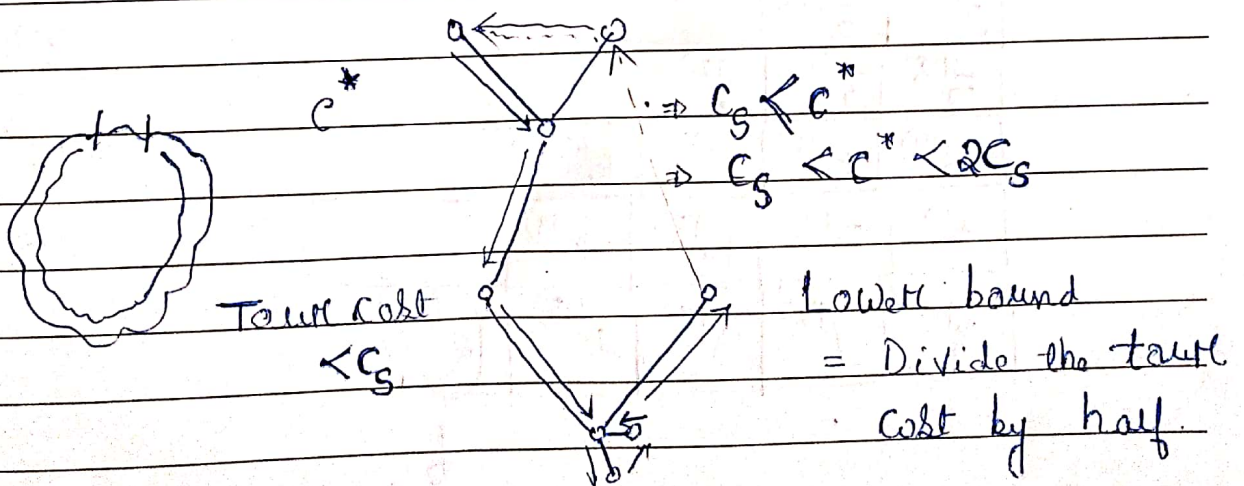 C*
⇒ C_S < C*
⇒ C_S < C* < 2C_S
Tour cost
< C_S
Lower bound
= Divide the tour
cost by half.